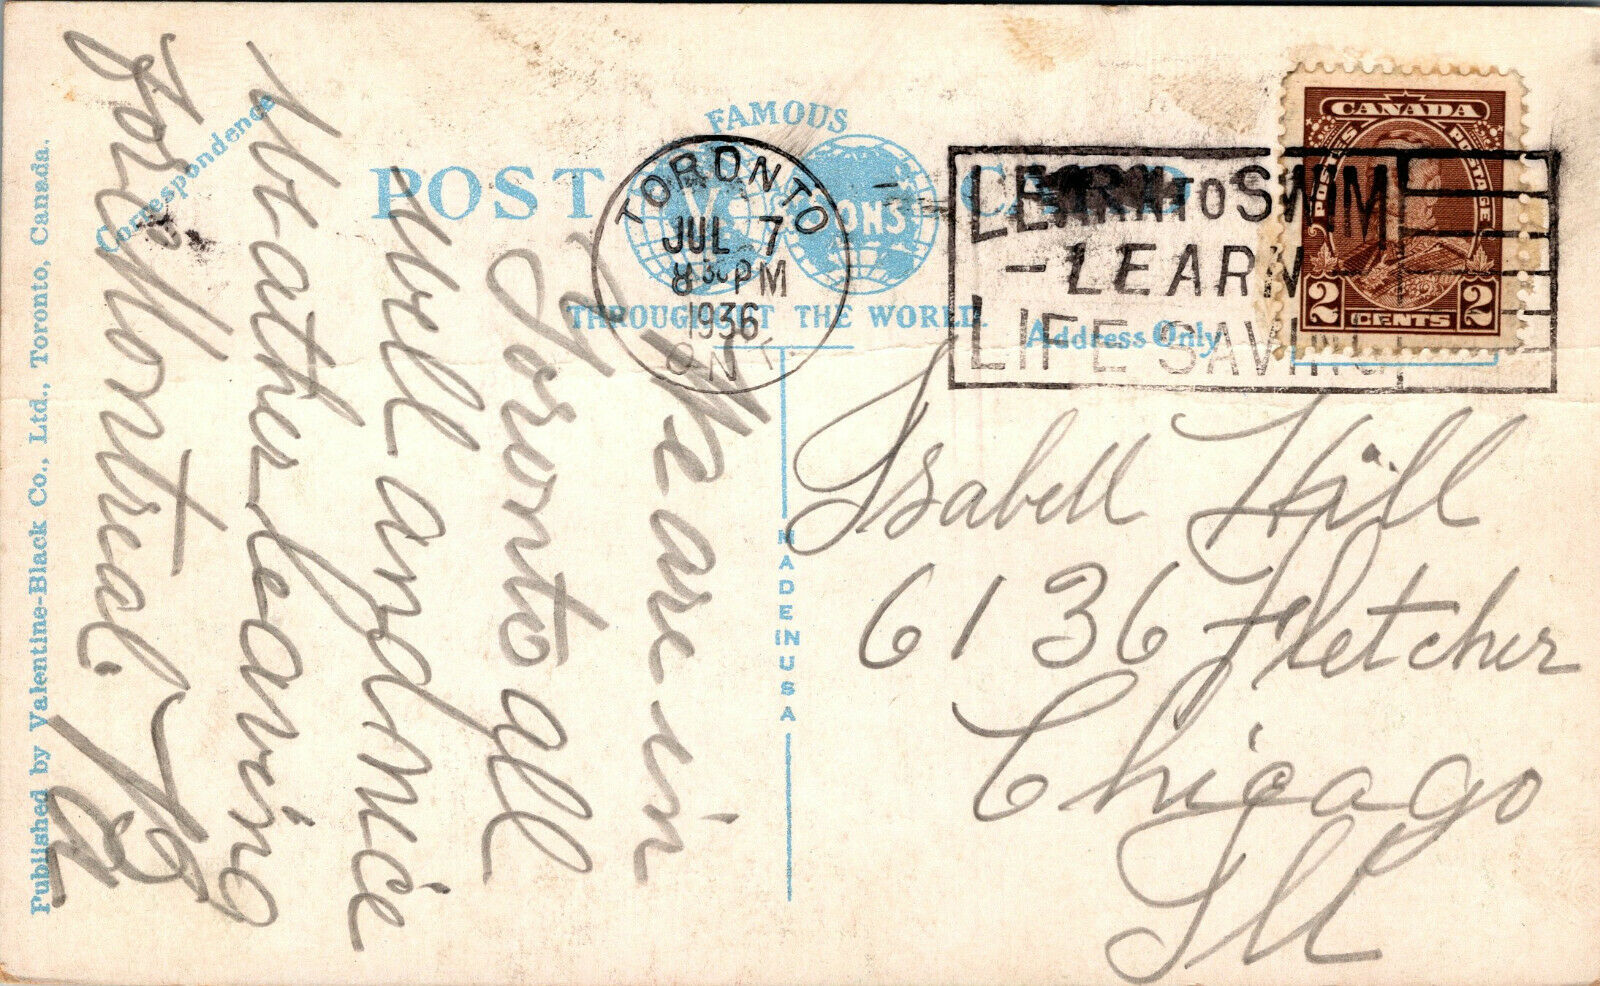 FAMOUS
POST CARD
THROUGHOUT THE WORLD.
TORONTO
JUL 7
8 30 PM
1936
ONT.
LEARN TO SWIM
- LEARN -
LIFE SAVING
CANADA
POSTES POSTAGE
2 CENTS 2
Address Only
Correspondence
We are in
Toronto all
well and nice
weather leaving
for Montreal.
MADE IN U S A
Isabell Hill
6136 Fletcher
Chicago
Ill
Published by Valentine-Black Co., Ltd., Toronto, Canada.